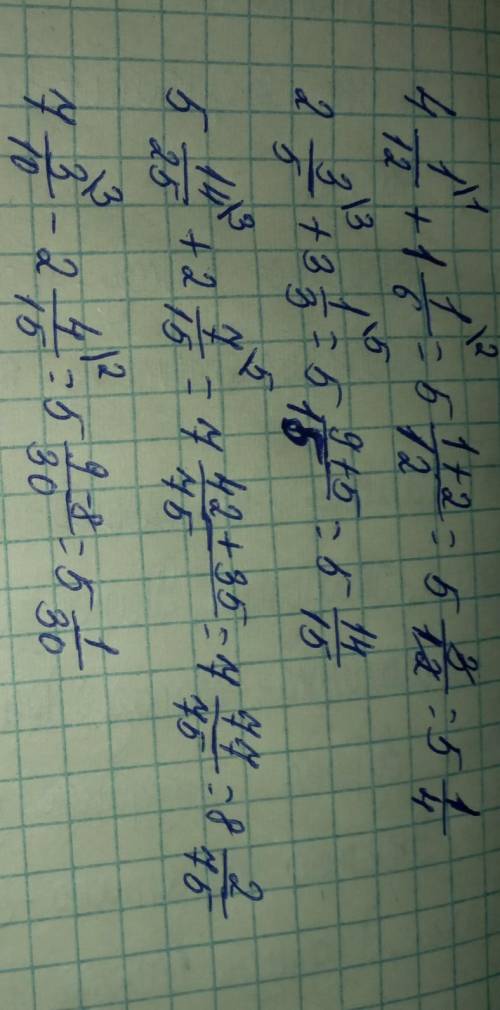 4 1\1/12 + 1 1\2/6 = 5 1+2/12 = 5 3/12 = 5 1/4
2 3\3/5 + 3 1\5/3 = 5 9+5/15 = 5 14/15
5 14\3/25 + 2 7\5/15 = 7 42+35/75 = 7 77/75 = 8 2/75
7 3\3/10 - 2 4\2/15 = 5 9-8/30 = 5 1/30